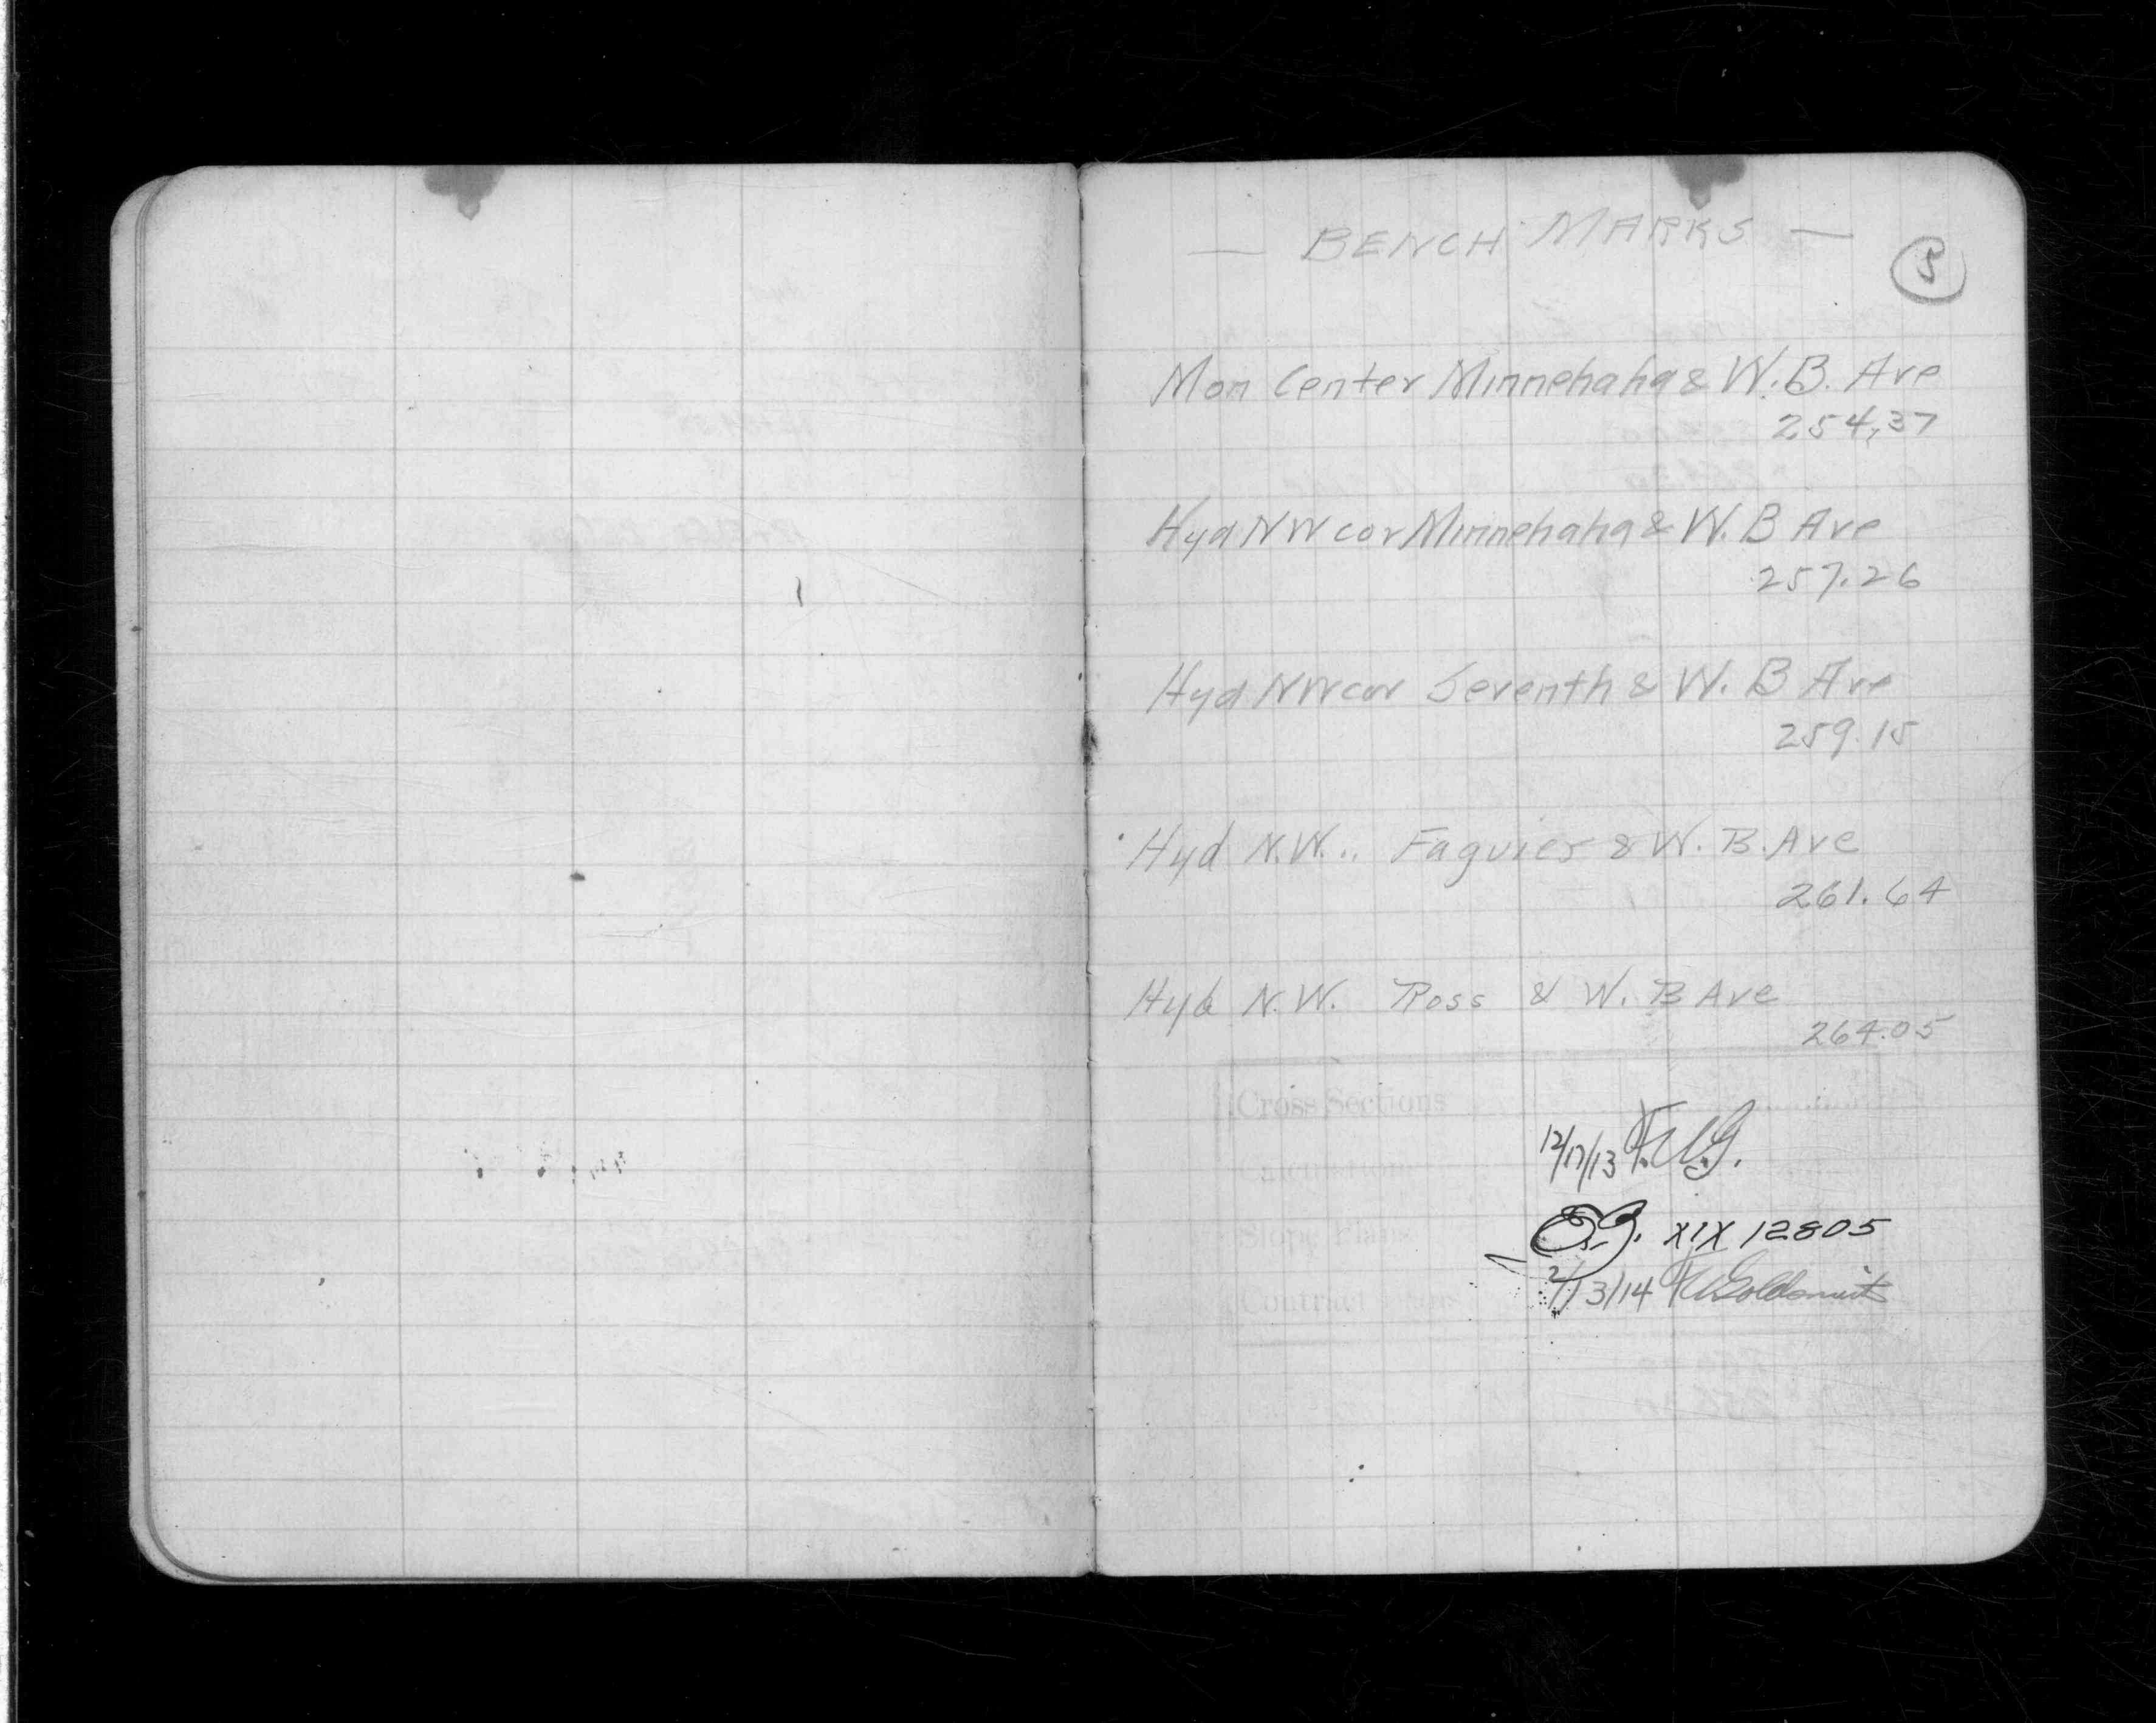 — BENCH MARKS —
5
Mon Center Minnehaha & W. B. Ave
254.37
Hyd NW cor Minnehaha & W. B Ave
257.26
Hyd NW cor Seventh & W. B Ave
259.15
Hyd N.W. .. Faguier & W. B. Ave
261.64
Hyd N.W. Ross & W. B Ave
264.05
Cross Sections
12/17/13 F.W.G.
O.G. XIX 12805
Slope Plans
2/13/14 FW Goldsmith
Contract